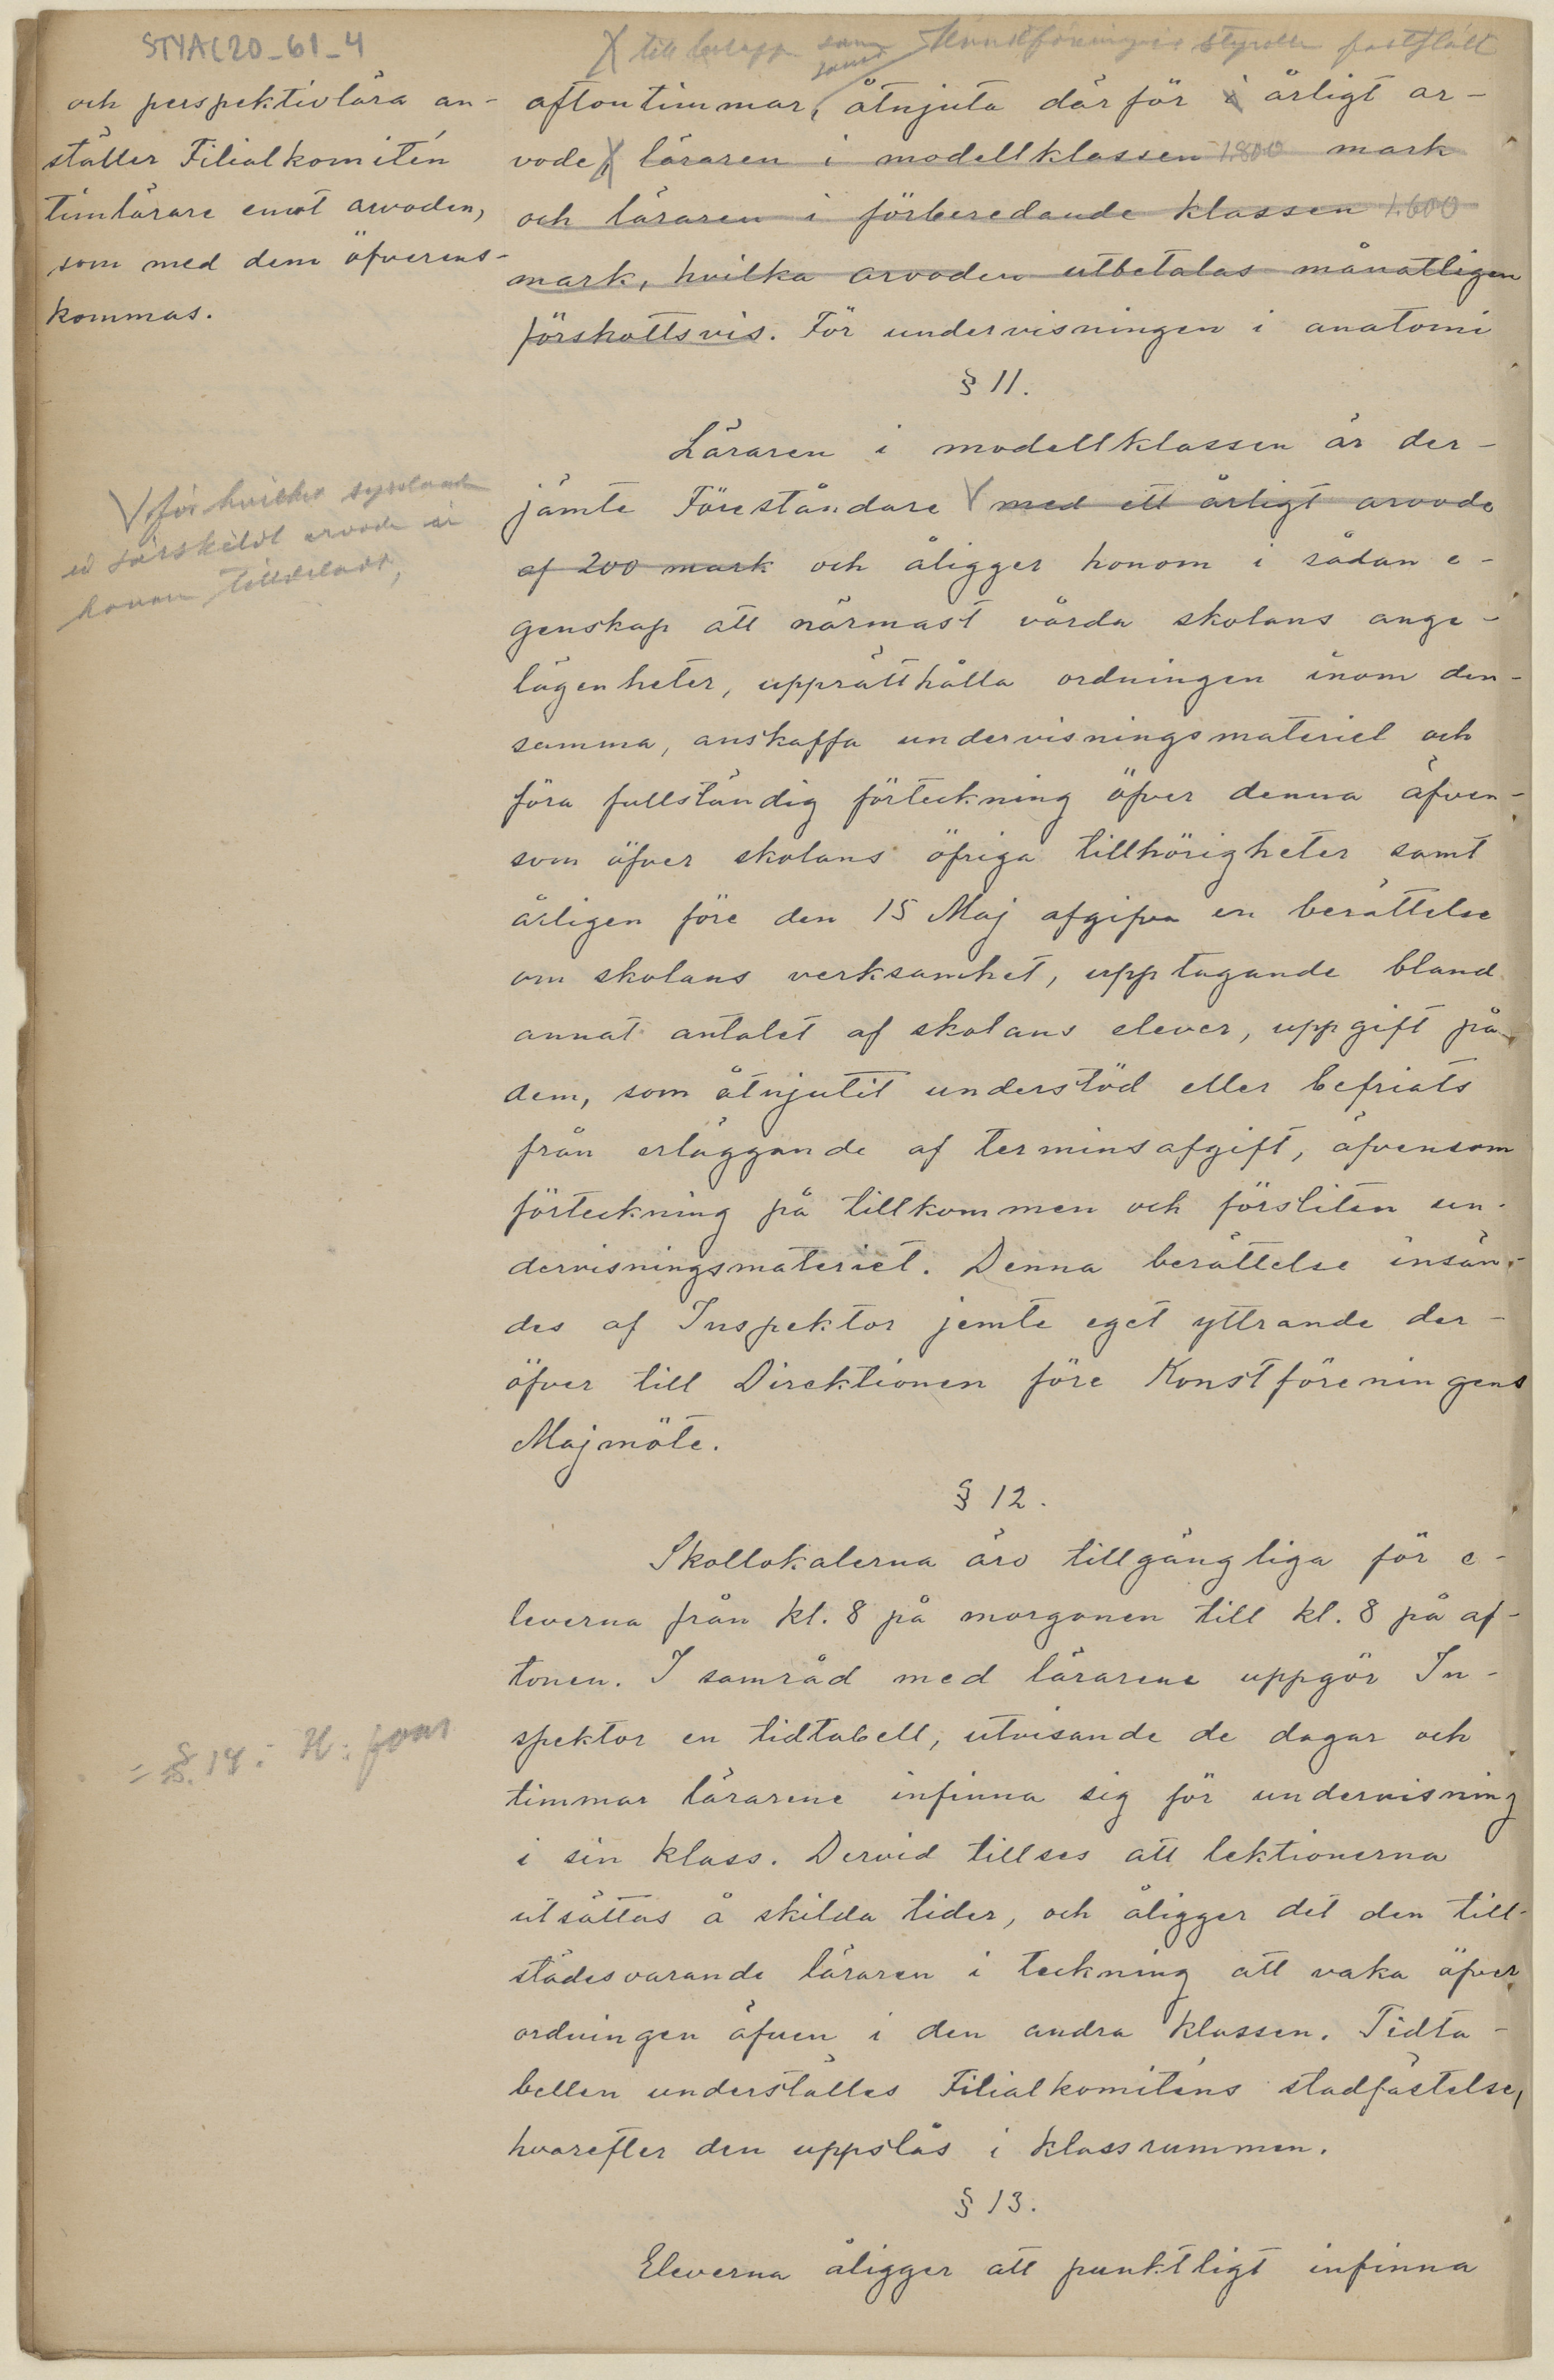 STYA(20_61_4
X till belopp som Konstföreningens Styrelse fastställt
aftontimmar, åtnjuta därför i årligt ar-
vode X, läraren i modellklassen 1.800 mark
och läraren i förberedande klassen 1.600
mark, hvilka arvoden utbetalas månatligen
förskottsvis. För undervisningen i anatomi
och perspektivlära an-
ställer Filialkomitén
timlärare emot arvoden,
som med dem öfverens-
kommas.
§ 11.
Läraren i modellklassen är der-
jämte Föreståndare V med ett årligt arvode
af 200 mark och åligger honom i sådan e-
genskap att närmast vårda skolans ange-
lägenheter, upprätthålla ordningen inom den-
samma, anskaffa undervisningsmateriel och
föra fullständig förteckning öfver denna äfven-
som öfver skolans öfriga tillhörigheter samt
årligen före den 15 Maj afgifva en berättelse
om skolans verksamhet, upptagande bland
annat antalet af skolans elever, uppgift på
dem, som åtnjutit understöd eller befriats
från erläggande af terminsafgift, äfvensom
förteckning på tillkommen och försliten un-
dervisningsmateriel. Denna berättelse insän-
des af Inspektor jemte eget yttrande der-
öfver till Direktionen före Konstföreningens
Majmöte.
V för hvilket
ej särskildt arvode är
honom tilldeladt,
§ 12.
Skollokalerna äro tillgängliga för e-
leverna från kl. 8 på morgonen till kl. 8 på af-
tonen. I samråd med lärarene uppgör In-
spektor en tidtabell, utvisande de dagar och
timmar lärarene infinna sig för undervisning
i sin klass. Dervid tillses att lektionerna
utsättas å skilda tider, och åligger det den till-
städesvarande läraren i teckning att vaka öfver
ordningen äfven i den andra klassen. Tidta-
bellen underställes Filialkomiténs stadfästelse,
hvarefter den uppslås i klassrummen.
= §. 14. H: fors
§ 13.
Eleverna åligger att punktligt infinna